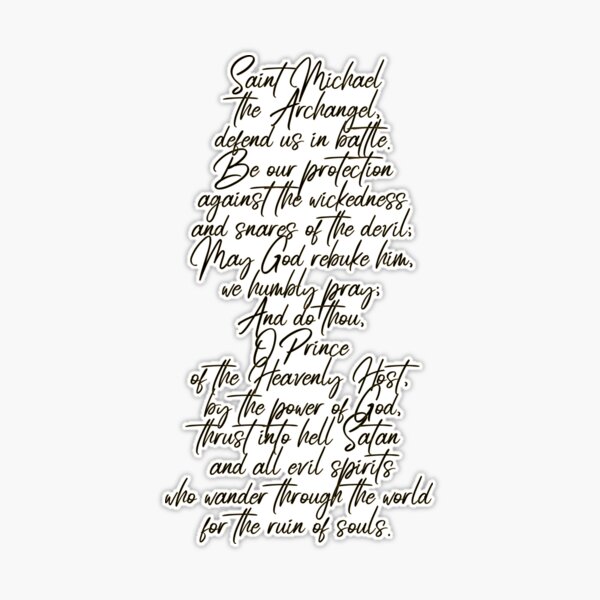 Saint Michael
the Archangel,
defend us in battle.
Be our protection
against the wickedness
and snares of the devil;
May God rebuke him,
we humbly pray;
And do thou,
O Prince
of the Heavenly Host,
by the power of God,
thrust into hell Satan
and all evil spirits
who wander through the world
for the ruin of souls.